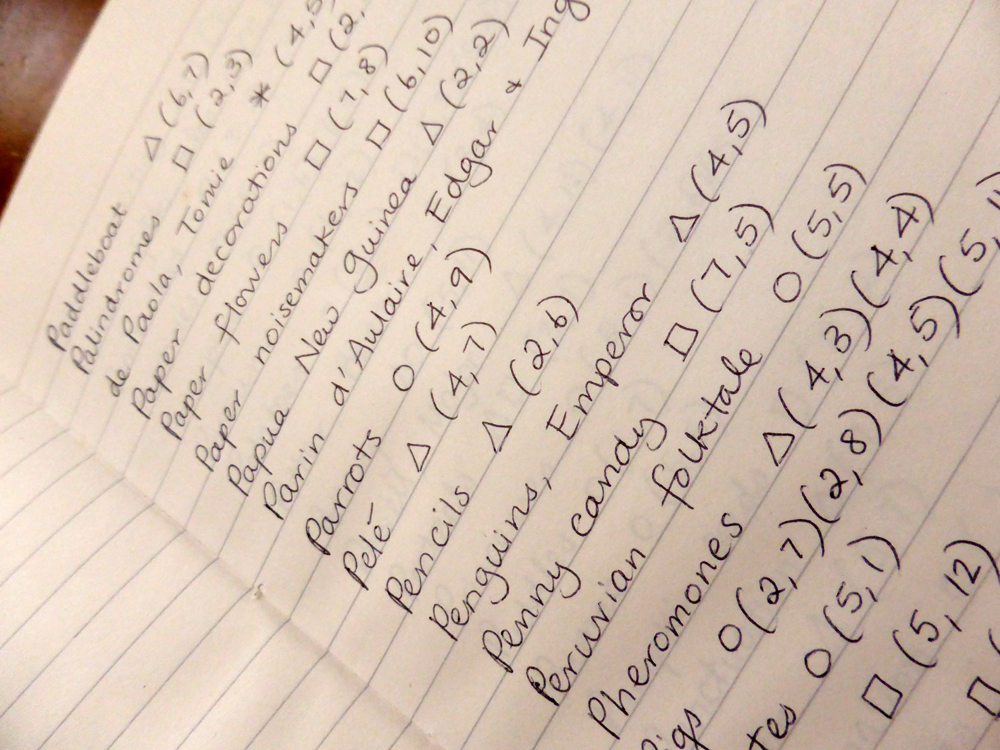 Paddleboat △ (6,7)
Palindromes □ (2,3)
de Paola, Tomie * (4,5
Paper decorations □ (2,
Paper flowers □ (7,8)
Paper noisemakers □ (6,10)
Papua New Guinea △ (2,2)
Parin d'Aulaire, Edgar + Ing
Parrots O (4,9)
Pelé △ (4,7)
Pencils △ (2,6)
Penguins, Emperor △ (4,5)
Penny candy □ (7,5)
Peruvian folktale O (5,5)
Pheromones △ (4,3)(4,4)
igs O (2,7)(2,8)(4,5)(5,
tes O (5,1)
□ (5,12)
□ (